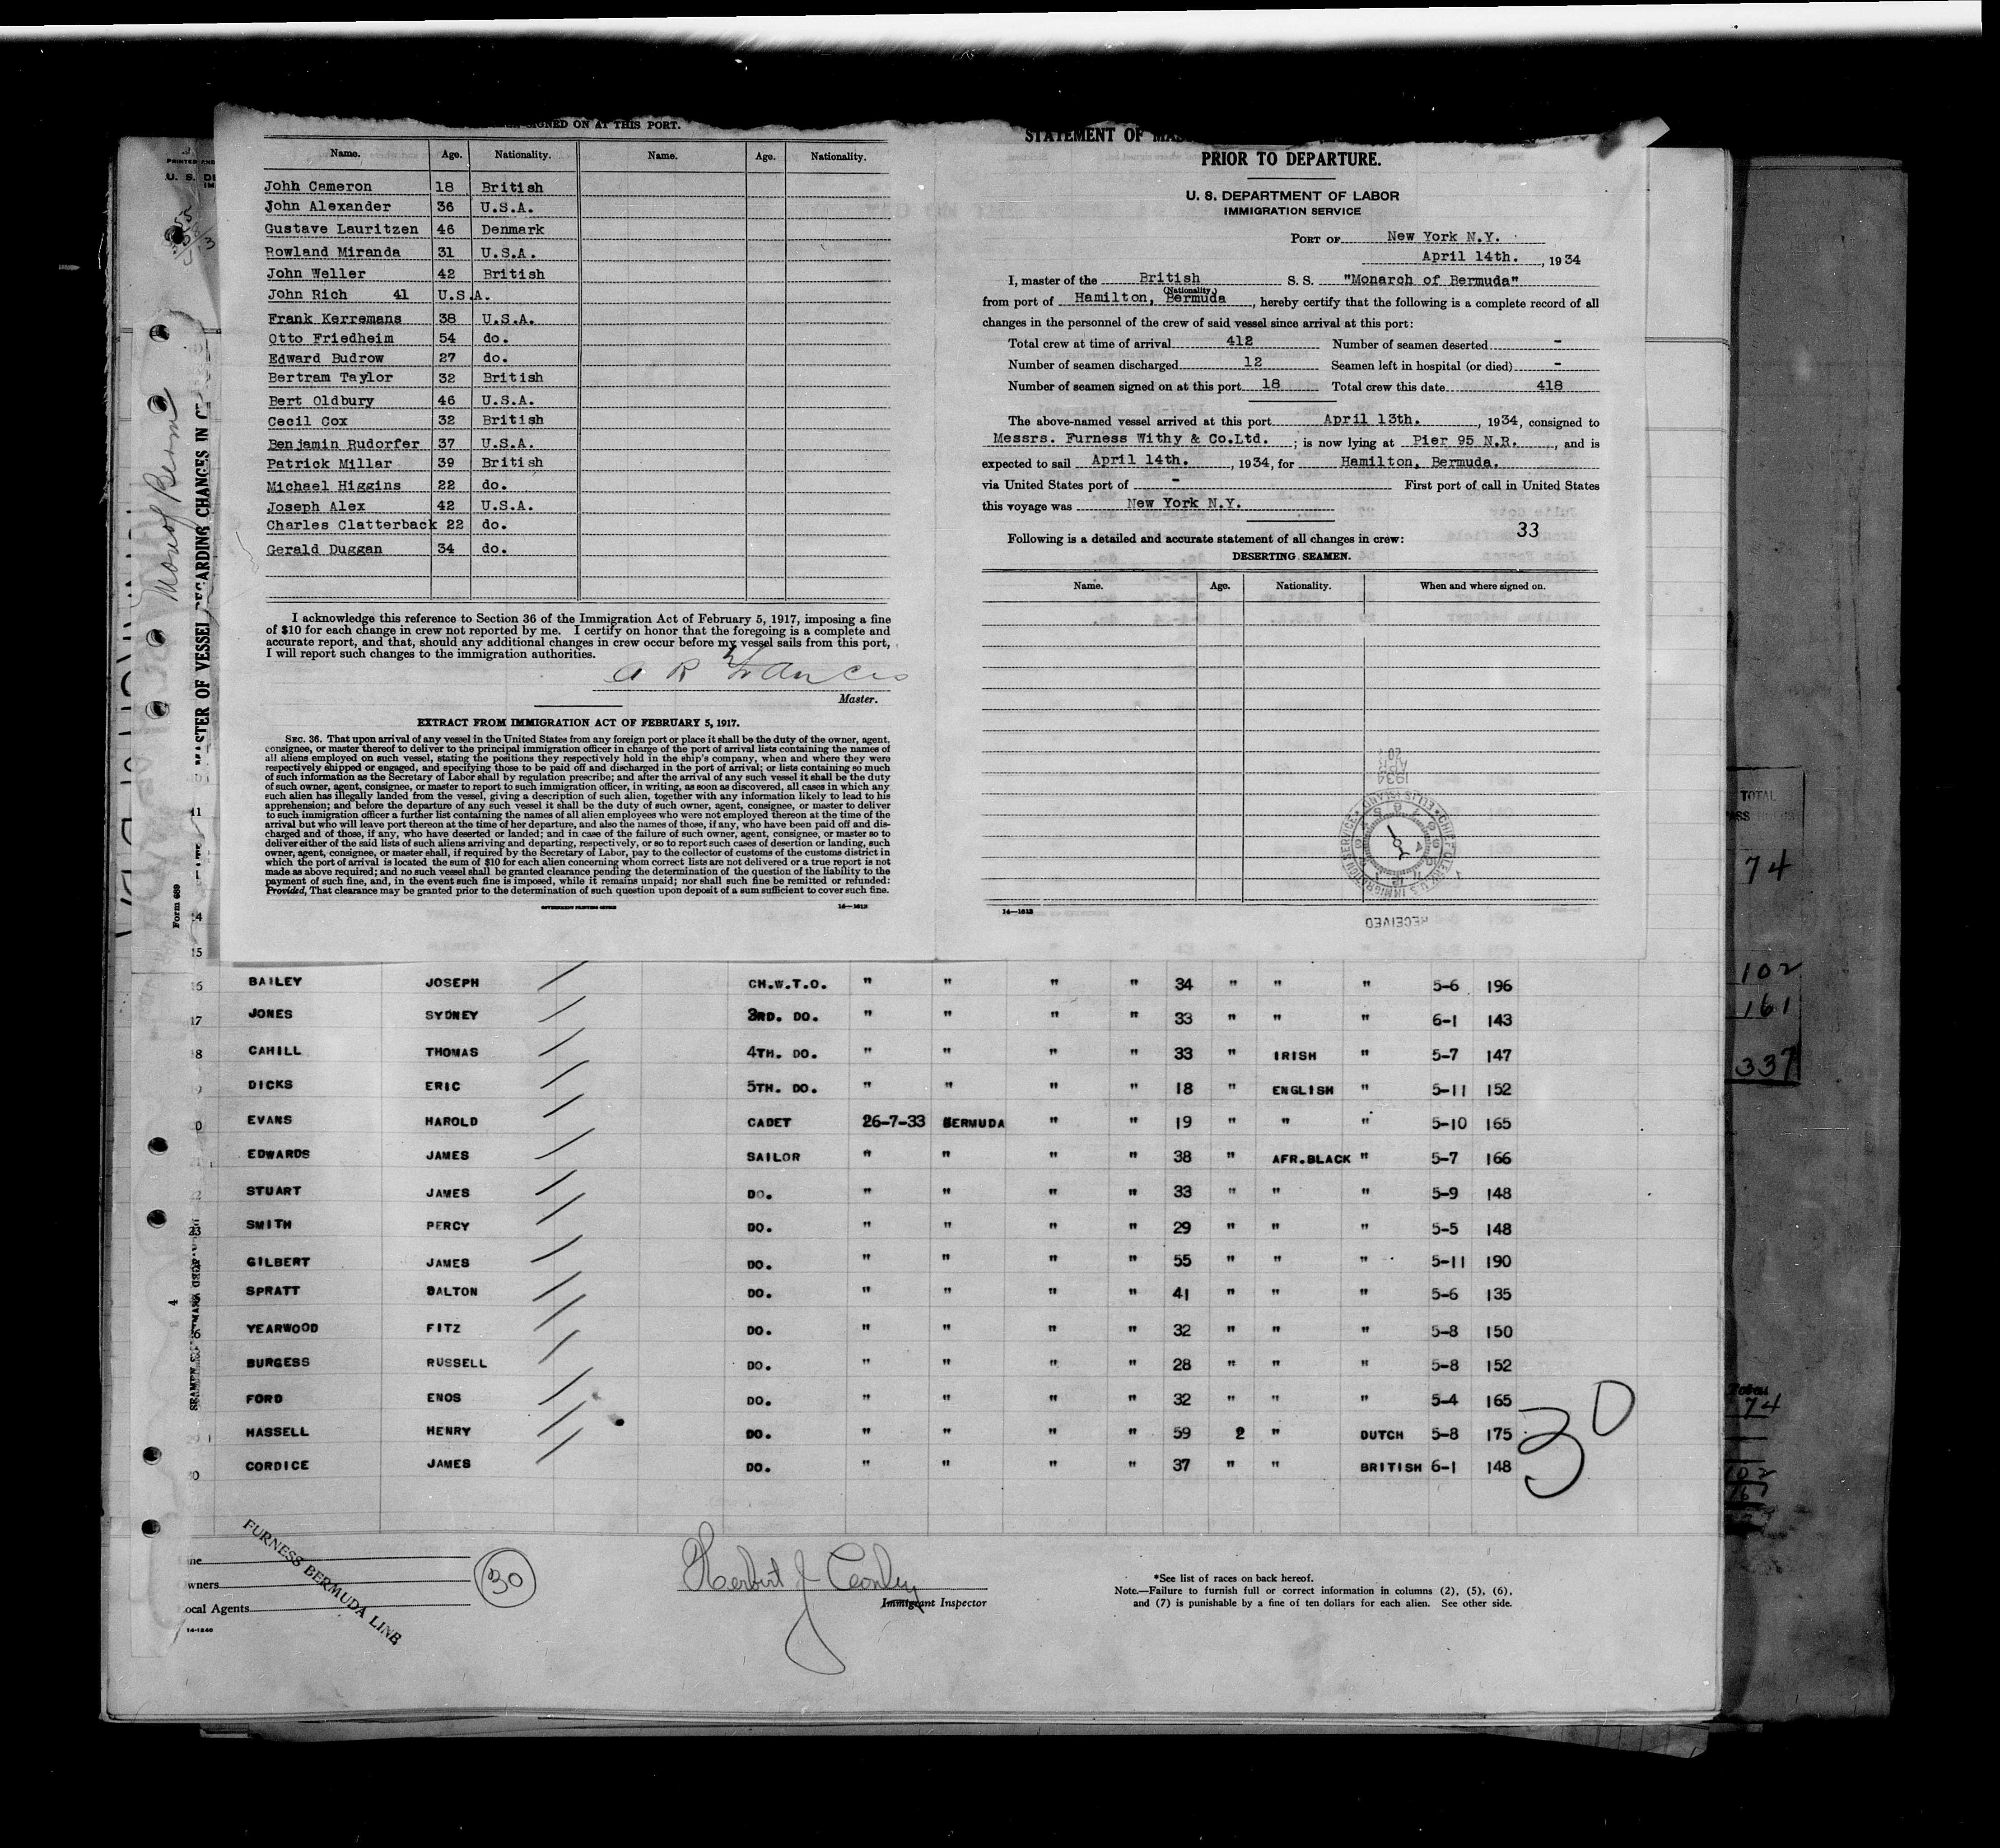 SIGNED ON AT THIS PORT.
Name. Age. Nationality. Name. Age. Nationality.
John Cameron 18 British
John Alexander 36 U.S.A.
Gustave Lauritzen 46 Denmark
Rowland Miranda 31 U.S.A.
John Weller 42 British
John Rich 41 U.S.A.
Frank Kerremans 38 U.S.A.
Otto Friedheim 54 do.
Edward Budrow 27 do.
Bertram Taylor 32 British
Bert Oldbury 46 U.S.A.
Cecil Cox 32 British
Benjamin Rudorfer 37 U.S.A.
Patrick Millar 39 British
Michael Higgins 22 do.
Joseph Alex 42 U.S.A.
Charles Clatterback 22 do.
Gerald Duggan 34 do.
I acknowledge this reference to Section 36 of the Immigration Act of February 5, 1917, imposing a fine
of $10 for each change in crew not reported by me. I certify on honor that the foregoing is a complete and
accurate report, and that, should any additional changes in crew occur before my vessel sails from this port,
I will report such changes to the immigration authorities.
A R Francis
Master.
EXTRACT FROM IMMIGRATION ACT OF FEBRUARY 5, 1917.
SEC. 36. That upon arrival of any vessel in the United States from any foreign port or place it shall be the duty of the owner, agent,
consignee, or master thereof to deliver to the principal immigration officer in charge of the port of arrival lists containing the names of
all aliens employed on such vessel, stating the positions they respectively hold in the ship's company, when and where they were
respectively shipped or engaged, and specifying those to be paid off and discharged in the port of arrival; or lists containing so much
of such information as the Secretary of Labor shall by regulation prescribe; and after the arrival of any such vessel it shall be the duty
of such owner, agent, consignee, or master to report to such immigration officer, in writing, as soon as discovered, all cases in which any
such alien has illegally landed from the vessel, giving a description of such alien, together with any information likely to lead to his
apprehension; and before the departure of any such vessel it shall be the duty of such owner, agent, consignee, or master to deliver
to such immigration officer a further list containing the names of all alien employees who were not employed thereon at the time of the
arrival but who will leave port thereon at the time of her departure, and also the names of those, if any, who have been paid off and dis-
charged and of those, if any, who have deserted or landed; and in case of the failure of such owner, agent, consignee, or master so to
deliver either of the said lists of such aliens arriving and departing, respectively, or so to report such cases of desertion or landing, such
owner, agent, consignee, or master shall, if required by the Secretary of Labor, pay to the collector of customs of the customs district in
which the port of arrival is located the sum of $10 for each alien concerning whom correct lists are not delivered or a true report is not
made as above required; and no such vessel shall be granted clearance pending the determination of the question of the liability to the
payment of such fine, and, in the event such fine is imposed, while it remains unpaid; nor shall such fine be remitted or refunded:
Provided, That clearance may be granted prior to the determination of such question upon deposit of a sum sufficient to cover such fine.
GOVERNMENT PRINTING OFFICE 14—1613
STATEMENT OF
PRIOR TO DEPARTURE.
U. S. DEPARTMENT OF LABOR
IMMIGRATION SERVICE
PORT OF New York N.Y.
April 14th. , 1934
I, master of the British S. S. "Monarch of Bermuda"
(Nationality)
from port of Hamilton, Bermuda , hereby certify that the following is a complete record of all
changes in the personnel of the crew of said vessel since arrival at this port:
Total crew at time of arrival 412 Number of seamen deserted -
Number of seamen discharged 12 Seamen left in hospital (or died) -
Number of seamen signed on at this port 18 Total crew this date 418
The above-named vessel arrived at this port April 13th. , 1934, consigned to
Messrs. Furness Withy & Co.Ltd. ; is now lying at Pier 95 N.R. , and is
expected to sail April 14th. , 1934, for Hamilton, Bermuda.
via United States port of - First port of call in United States
this voyage was New York N.Y.
33
Following is a detailed and accurate statement of all changes in crew:
DESERTING SEAMEN.
Name. Age. Nationality. When and where signed on.
1934
APR
20
CHIEF CLERK U.S. IMMIGRATION SERVICE ELLIS ISLAND
RECEIVED
14—1613
MASTER OF VESSEL REGARDING CHANGES IN
Form 689
4
TOTAL
74
102
161
337
15
16 BAILEY JOSEPH CH.W.T.O. " " " " 34 " " " 5-6 196
17 JONES SYDNEY 3RD. DO. " " " " 33 " " " 6-1 143
8 CAHILL THOMAS 4TH. DO. " " " " 33 " IRISH " 5-7 147
DICKS ERIC 5TH. DO. " " " " 18 " ENGLISH " 5-11 152
0 EVANS HAROLD CADET 26-7-33 BERMUDA " " 19 " " " 5-10 165
EDWARDS JAMES SAILOR " " " " 38 " AFR.BLACK " 5-7 166
STUART JAMES DO. " " " " 33 " " " 5-9 148
23 SMITH PERCY DO. " " " " 29 " " " 5-5 148
GILBERT JAMES DO. " " " " 55 " " " 5-11 190
SPRATT DALTON DO. " " " " 41 " " " 5-6 135
6 YEARWOOD FITZ DO. " " " " 32 " " " 5-8 150
BURGESS RUSSELL DO. " " " " 28 " " " 5-8 152
FORD ENOS DO. " " " " 32 " " " 5-4 165
HASSELL HENRY DO. " " " " 59 2 " DUTCH 5-8 175
30 CORDICE JAMES DO. " " " " 37 " " BRITISH 6-1 148
30
wners
ocal Agents
14-1240
FURNESS BERMUDA LINE
30
Herbert J Conley
Immigrant Inspector
*See list of races on back hereof.
Note.—Failure to furnish full or correct information in columns (2), (5), (6),
and (7) is punishable by a fine of ten dollars for each alien. See other side.
74
102